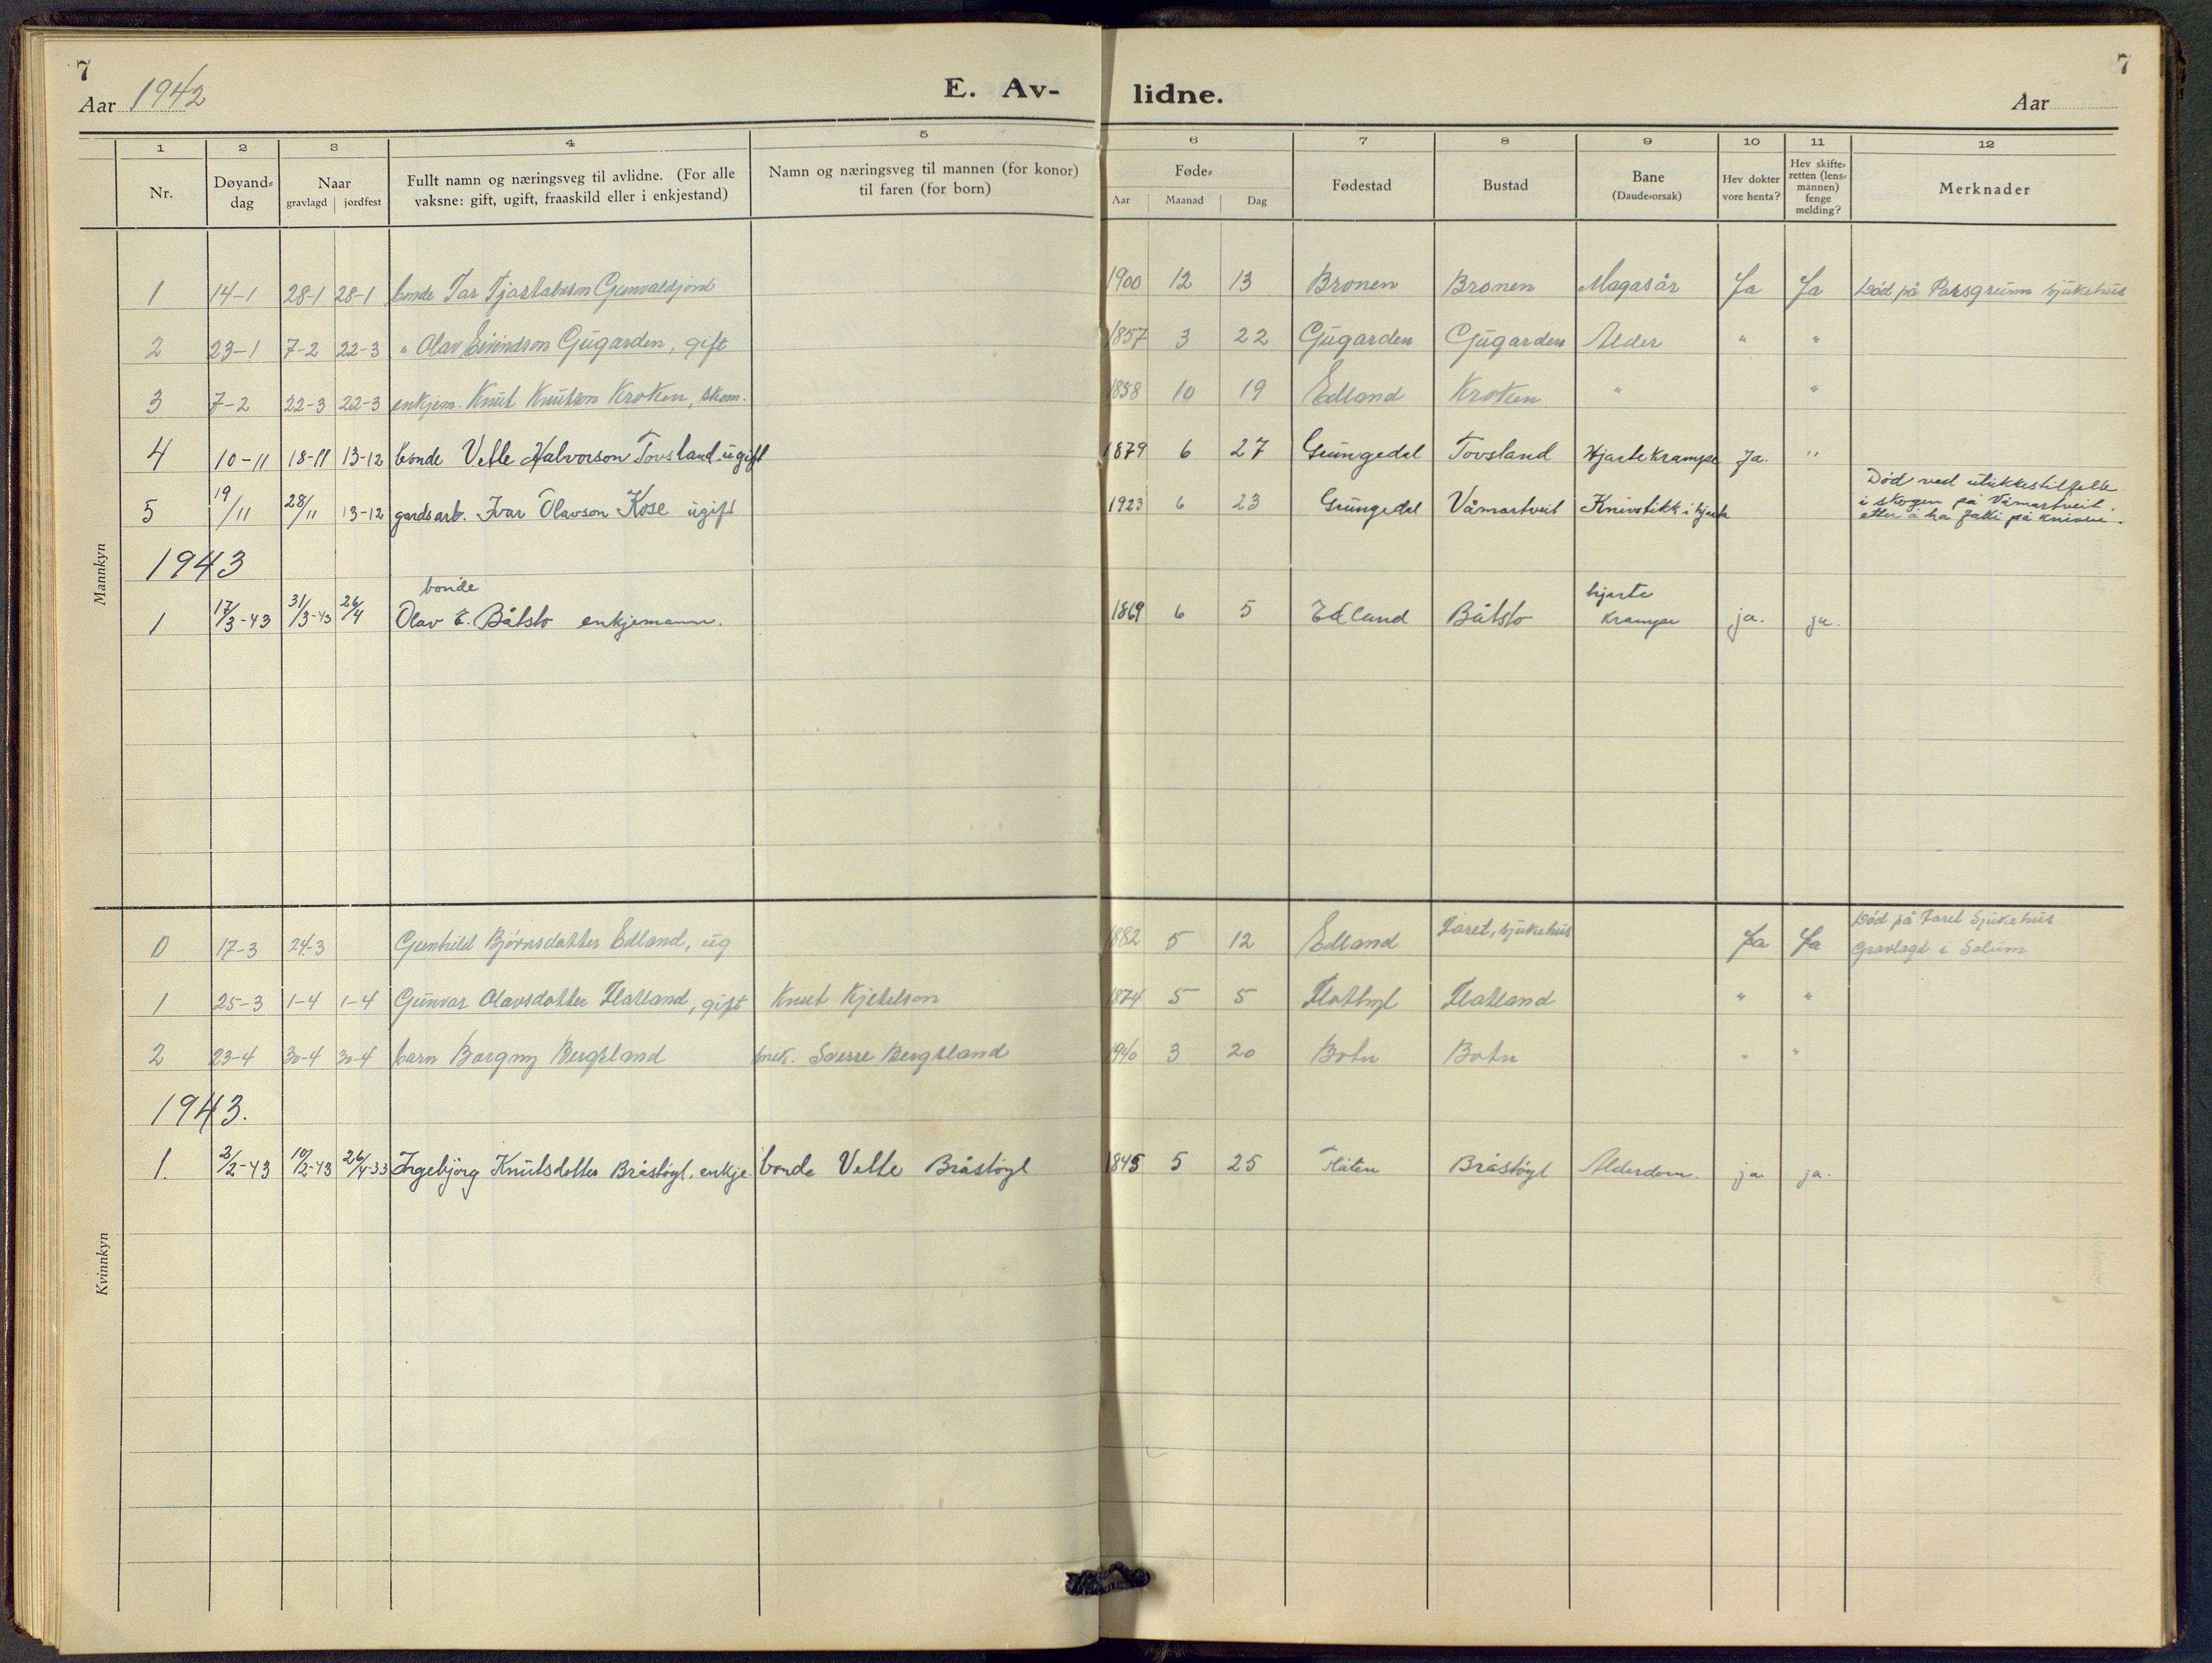 7
Aar 1942
E. Av-
lidne.
7
Aar
1 2 3 4 5 6 7 8 9 10 11 12
Nr.
Døyand-
dag
Naar
gravlagd jordfest
Fullt namn og næringsveg til avlidne. (For alle
vaksne: gift, ugift, fraaskild eller i enkjestand)
Namn og næringsveg til mannen (for konor)
til faren (for born)
Føde-
Aar Maanad Dag
Fødestad
Bustad
Bane
(Daude-orsak)
Hev dokter
vore henta?
Hev skifte-
retten (lens-
mannen)
fenge
melding?
Merknader
Mannkyn
1 14-1 28-1 28-1 bonde Tar Gunvaldjord 1900 12 13 Bronen Bronen Magasår Ja Ja Død på Porsgrunn sjukehus
2 23-1 7-2 22-3 " Olav Eivindson Gugarden, gift 1857 3 22 Gugarden Gugarden Alder " "
3 7-2 22-3 22-3 enkjem. Knut Knutson Kroken, skom. 1858 10 19 Edland Kroken " "
4 10-11 18-11 13-12 bonde Vetle Halvorson Tovsland ugift 1879 6 27 Grungedal Tovsland Hjartekrampe Ja. "
5 19/11 28/11 13-12 gardsarb. Ivar Olavson Kose ugift 1923 6 23 Grungedal Våmartveit Knivstikk i hjarta
Død ved ulukkestilfelle
i skogen på Våmartveit,
etter å ha falli på kniven.
1943
bonde
hjarte
1 17/3-43 31/3-43 26/4 Olav E. Båtsto enkjemann. 1869 6 5 Edland Båtsto krampe ja. ja.
Kvinnkyn
0 17-3 24-3 Gunhild Bjørnsdotter Edland, ug 1882 5 12 Edland Faret, sjukehus Ja Ja
Død på Faret Sjukehus
Gravlagt i Solum
1 25-3 1-4 1-4 Gunvor Olavsdotter Flatland, gift Knut Kjetilson 1874 5 5 Flatland " "
2 23-4 30-4 30-4 barn Borgny Bergsland Sverre Bergsland 1940 3 20 Botn Botn " "
1943.
1. 2/2-43 10/2-43 26/4-33 Ingebjørg Knutsdotter Bråstøyl, enkje. bonde Vetle Bråstøyl 1845 5 25 Flåten Bråstøyl Alderdom. ja ja.